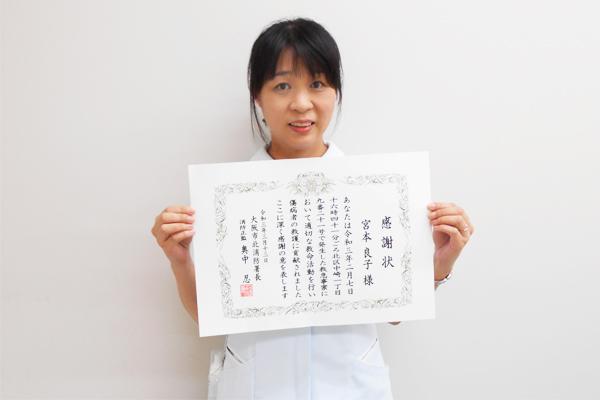 感謝状
宮本良子様
あなたは令和三年二月七日
十六時四十一分ごろ北区中崎一丁目
九番二十一号で発生した救急事案に
おいて適切な救命活動を行い
傷病者の救護に貢献されました
ここに深く感謝の意を表します
令和三年三月十三日
大阪市北消防署長
消防正監 奥中 忍